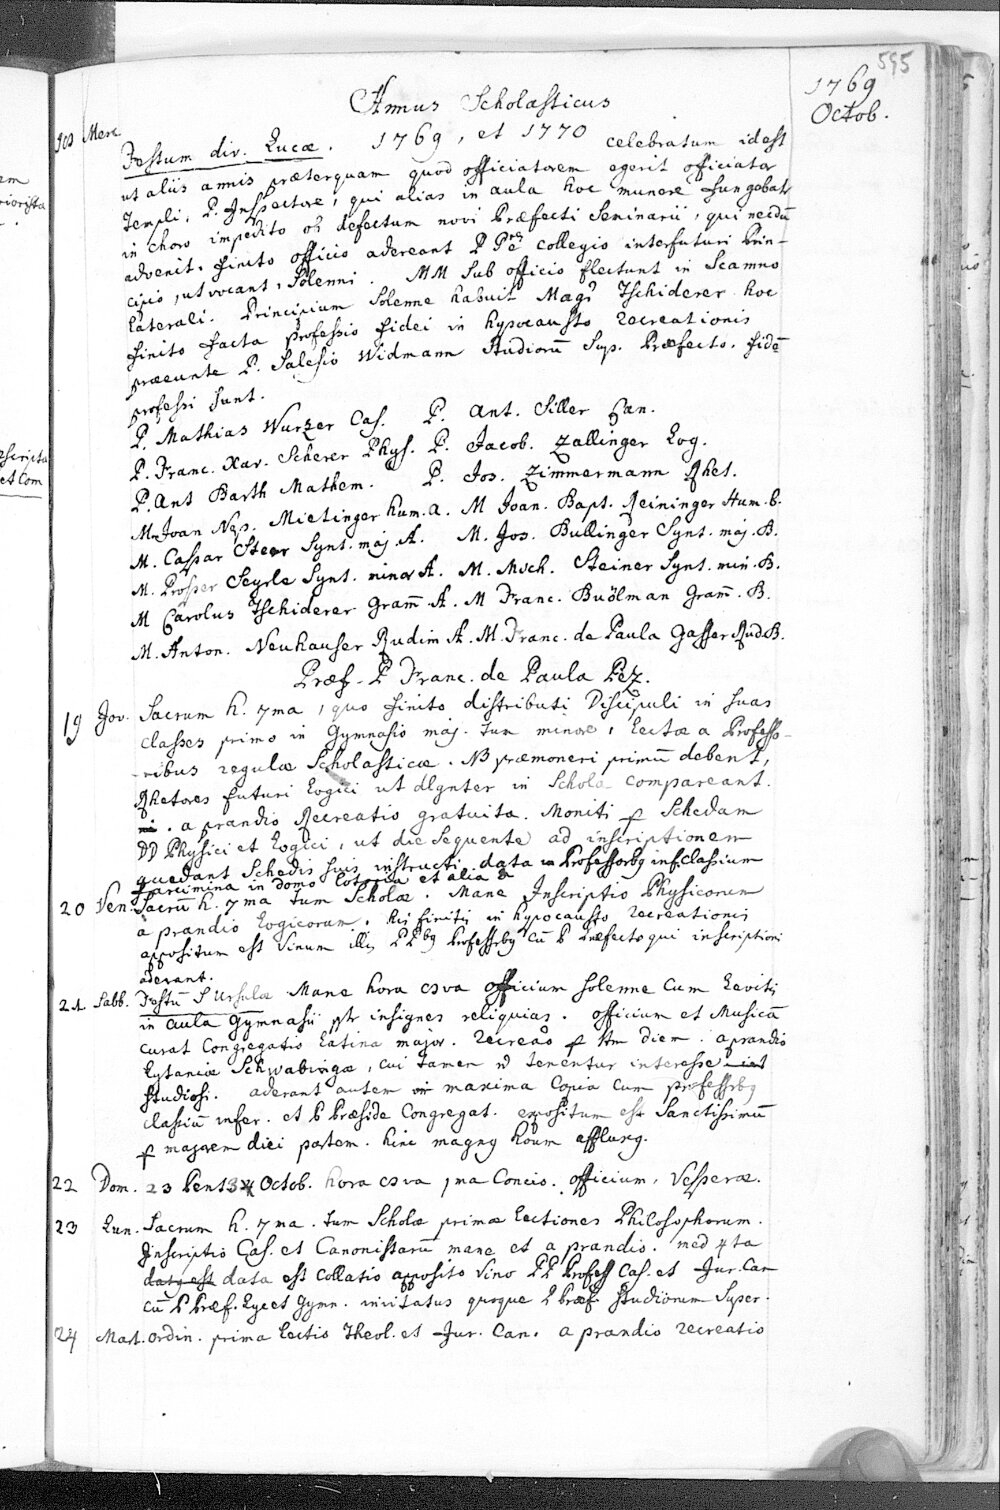 595
1769
Octob.
Annus Scholasticus
1769, et 1770
Merc
Festum div. Lucæ. celebratum idest
ut aliis annis præterquam quod officiatorem egerit officiator
Templi, P. Inspectore, qui alias in aula hoc munere fungebatr
in choro impedito ob defectum novi Præfecti Seminarii, qui necdū
advenit. finito officio adereant P P collegio interfuturi Prin-
cipio, ut vocant, Solenni. MM sub officio flectunt in Scamno
Laterali. Principium Solenne habuit Magr Tschiderer hoc
finito facta professio fidei in hypocausto recreationis
præeunte P. Salesio Widmann Studiorū Sup. Præfecto. fidē
professi sunt.
P. Mathias Wurzer Cas. P. Ant. Siller Can.
P. Franc. Xav. Scherer Phys. P. Jacob. Zallinger Log.
P. Ant Barth Mathem. P. Jos. Zimmermann Rhet.
M. Joan Nep. Mietinger hum. a. M Joan. Bapt. Reininger Hum. b.
M. Caspar Steer Synt. maj. A. M. Jos. Bullinger Synt. maj. B.
M. Prosper Seyrle Synt. minor A. M. Mich. Steiner Synt. min. B.
M Carolus Tschiderer Gram̄. A. M Franc. Buölman Gram̄. B.
M. Anton. Neuhauser Rudim A. M. Franc. de Paula Gasser Rud. B.
Præf. P Franc. de Paula Pez.
19 Jov. Sacrum h. 7ma, quo finito distributi Discipuli in suas
classes primo in Gymnasio maj. tum minore, Lectæ a Professo-
ribus regulæ Scholasticæ. NB præmoneri primū debent,
Rhetores futuri Logici ut dlgnter in Schola compareant.
a prandio Recreatio gratuita. Moniti p Schedam
DD Physici et Logici, ut die sequente ad inscriptionem
quedant Schedis suis instructi. data Professorbg inf. classium
farcimina in domo et alia
20 Ven. Sacrū h. 7ma tum Scholæ. Mane Inscriptio Physicorum
a prandio Logicorum. his finitis in hypocausto recreationis
appositum est vinum illis PPbg Professorbg cū P Præfecto qui inscriptioni
aderant.
21 Sabb. Festū S Ursulæ Mane hora 8va officium solenne cum Levitis
in aula Gymnasii ptr insignes reliquias. officium et Musicā
curat Congregatio Latina major. recreao p tm diem. a prandio
Lytaniæ Schwabingæ, cui tamen ñ tenentur interesse
studiosi. aderant autem in maxima copia cum professrbg
classiū infer. et P Præside Congregat. expositum est Sanctissimū
p majorem diei partem. hinc magng houm afflung.
22 Dom. 23 Pent Octob. hora 8va 1ma Concio. officium, Vesperæ.
23 Lun. Sacrum h. 7ma. tum Scholæ primæ Lectiones Philosophorum.
Inscriptio Cas. et Canonistarū mane et a prandio. med 4ta
datg est data est collatio apposito vino PP Profess Cas. et Jur. Can
cū P Præf. Lyc et Gymn. invitatus quoque P Præf. Studiorum Super.
24 Mart. Ordin. prima Lectio Theol. et Jur. Can. a prandio recreatio